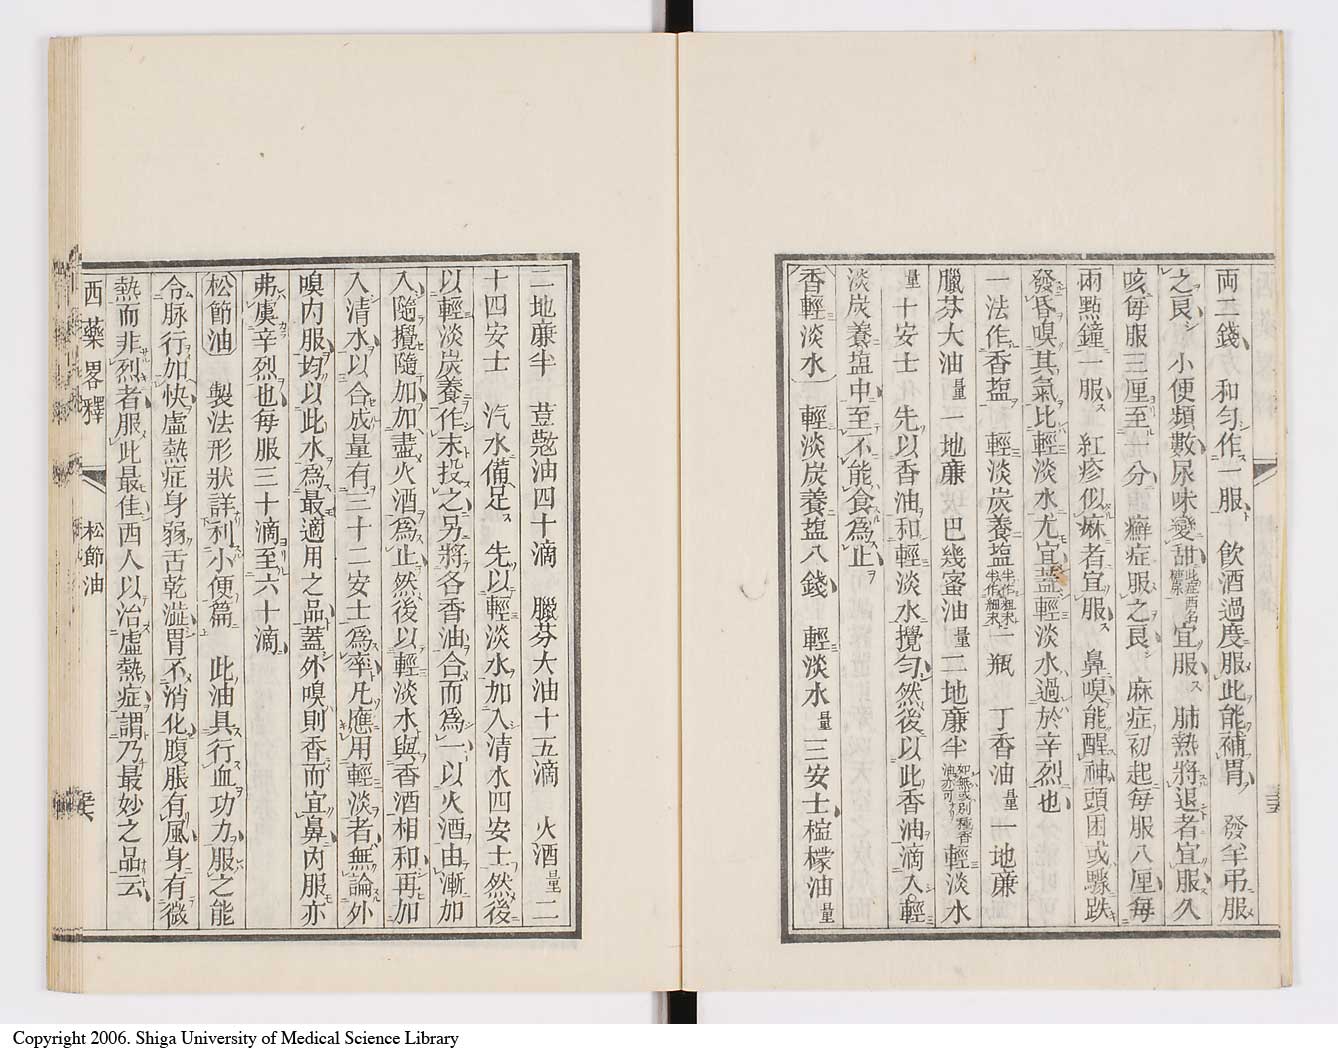 両二錢 和勻作一服 飲酒過度服此能補胃 發羊弔服
之良 小便頻數尿味變甜此症西名糖尿宜服 肺熱將退者宜服久
咳每服三厘至一分 癬症服之良 麻症初起每服八厘每
兩點鐘一服 紅疹似麻者宜服 鼻嗅能醒神頭困或驟跌
發昏嗅其氣比輕淡水尤宜蓋輕淡水過於辛烈也
一法作香塩 輕淡炭養塩半作粗末半作細末一瓶 丁香油量一地廉
臘芬大油量一地廉 巴幾蜜油量二地廉半如無或別種香油亦可輕淡水
量十安士 先以香油和輕淡水攪勻然後以此香油滴入輕
淡炭養塩中至不能食為止
香輕淡水 輕淡炭養塩八錢 輕淡水量三安士 檸檬油量
二地廉半 荳蔲油四十滴 臘芬大油十五滴 火酒量二
十四安士 汽水備足 先以輕淡水加入清水四安士然後
以輕淡炭養作末投之另將各香油合而為一以火酒由漸加
入隨攪隨加加盡火酒為止然後以輕淡水與香酒相和再加
入清水以合成量有三十二安士為率凡應用輕淡者無論外
嗅內服均以此水為最適用之品蓋外嗅則香而宜鼻內服亦
弗虞辛烈也每服三十滴至六十滴
松節油 製法形狀詳利小便篇 此油具行血功力服之能
令脉行加快虛熱症身弱舌乾澁胃不消化腹脹有風身有微
熱而非烈者服此最佳西人以治虛熱症謂乃最妙之品云
西藥畧釋 松節油
Copyright 2006. Shiga University of Medical Science Library